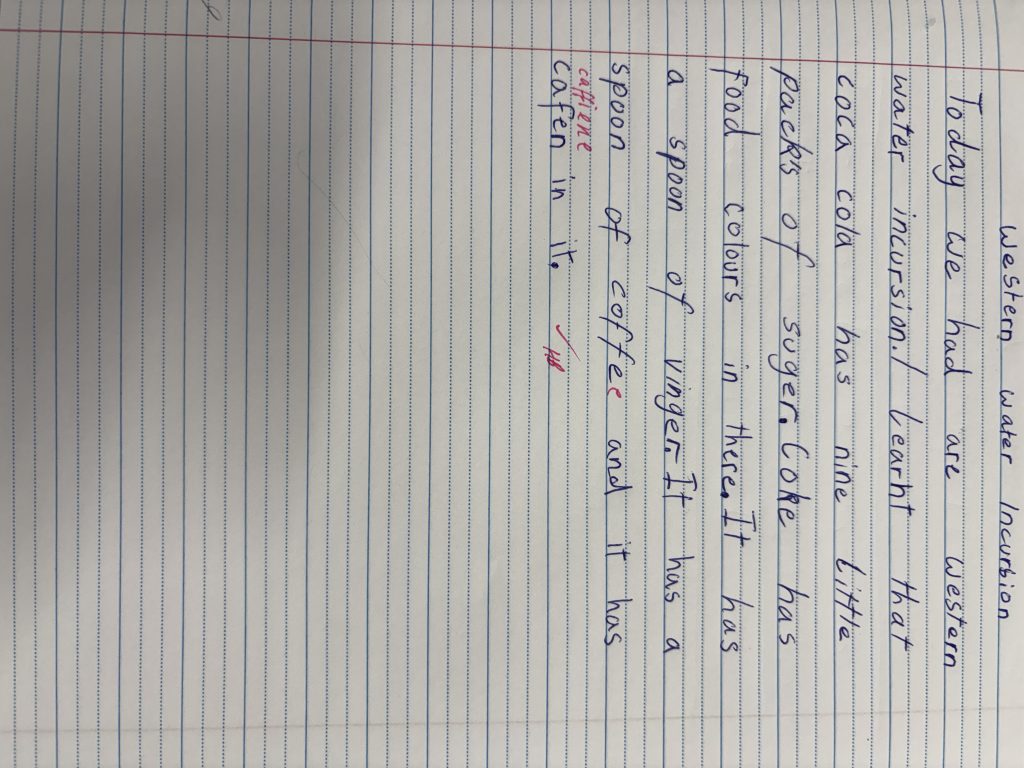 Western water Incursion
Today we had are western
water incursion. I Learnt that
coca cola has nine little
packs of suger. Coke has
food colours in there. It has
a spoon of vinger. It has a
spoon of coffee and it has
caffiene
cafen in it.